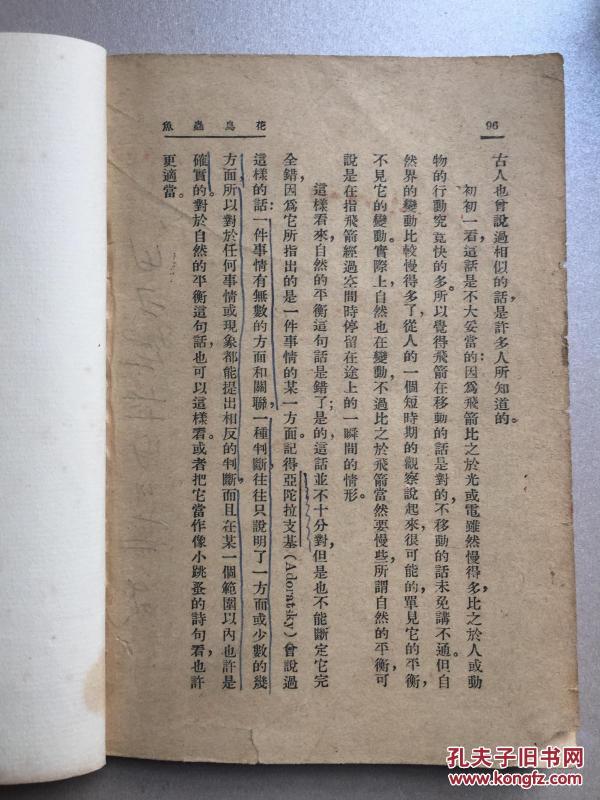 96
花鳥蟲魚
古人也曾說過相似的話,是許多人所知道的。
初初一看,這話是不大妥當的:因爲飛箭比之於光或電雖然慢得多,比之於人或動
物的行動究竟快的多。所以覺得飛箭在移動的話是對的,不移動的話未免講不通。但自
然界的變動比較慢得多了,從人的一個短時期的觀察說起來,很可能的,單見它的平衡,
不見它的變動。實際上自然也在變動,不過比之於飛箭當然要慢些,所謂自然的平衡,可
說是在指飛箭經過空間時停留在途上的一瞬間的情形。
這樣看來,自然的平衡這句話是錯了;是的,這話並不十分對,但是也不能斷定它完
全錯,因爲它所指出的是一件事情的某一方面。記得亞陀拉支基(Adoratsky)曾說過
這樣的話:一件事情有無數的方面和關聯,一種判斷往往只說明了一方面或少數的幾
方面,所以對於任何事情或現象都能提出相反的判斷,而且在某一個範圍以內也許是
確實的。對於自然的平衡這句話,也可以這樣看。或者把它當作像小跳蚤的詩句看,也許
更適當。
孔夫子旧书网
www.kongfz.com